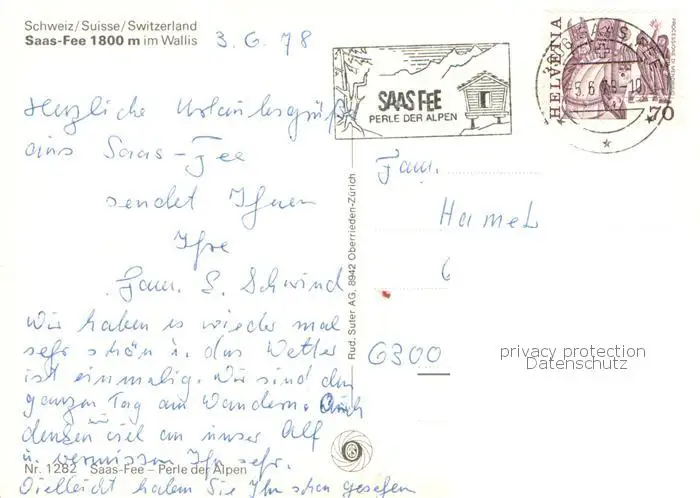 Schweiz/Suisse/Switzerland
Saas-Fee 1800 m im Wallis
3.6.78
Herzliche Urlaubsgrüße
aus Saas-Fee
sendet Ihnen
Ihre
Fam. S. Schwind
Wir haben es wieder mal
sehr schön u. das Wetter
ist einmalig. Wir sind den
ganzen Tag am Wandern. Auch
denken wir viel an unser Alf
u. vermissen Ihn sehr.
Vielleicht haben Sie Ihn schon gesehen
Nr. 1282 Saas-Fee – Perle der Alpen
Rud. Suter AG, 8942 Oberrieden-Zürich
SAAS FEE
PERLE DER ALPEN
SAAS-FEE
5.6.78-10
HELVETIA
70
Fam.
Hamel
6
6300
privacy protection
Datenschutz